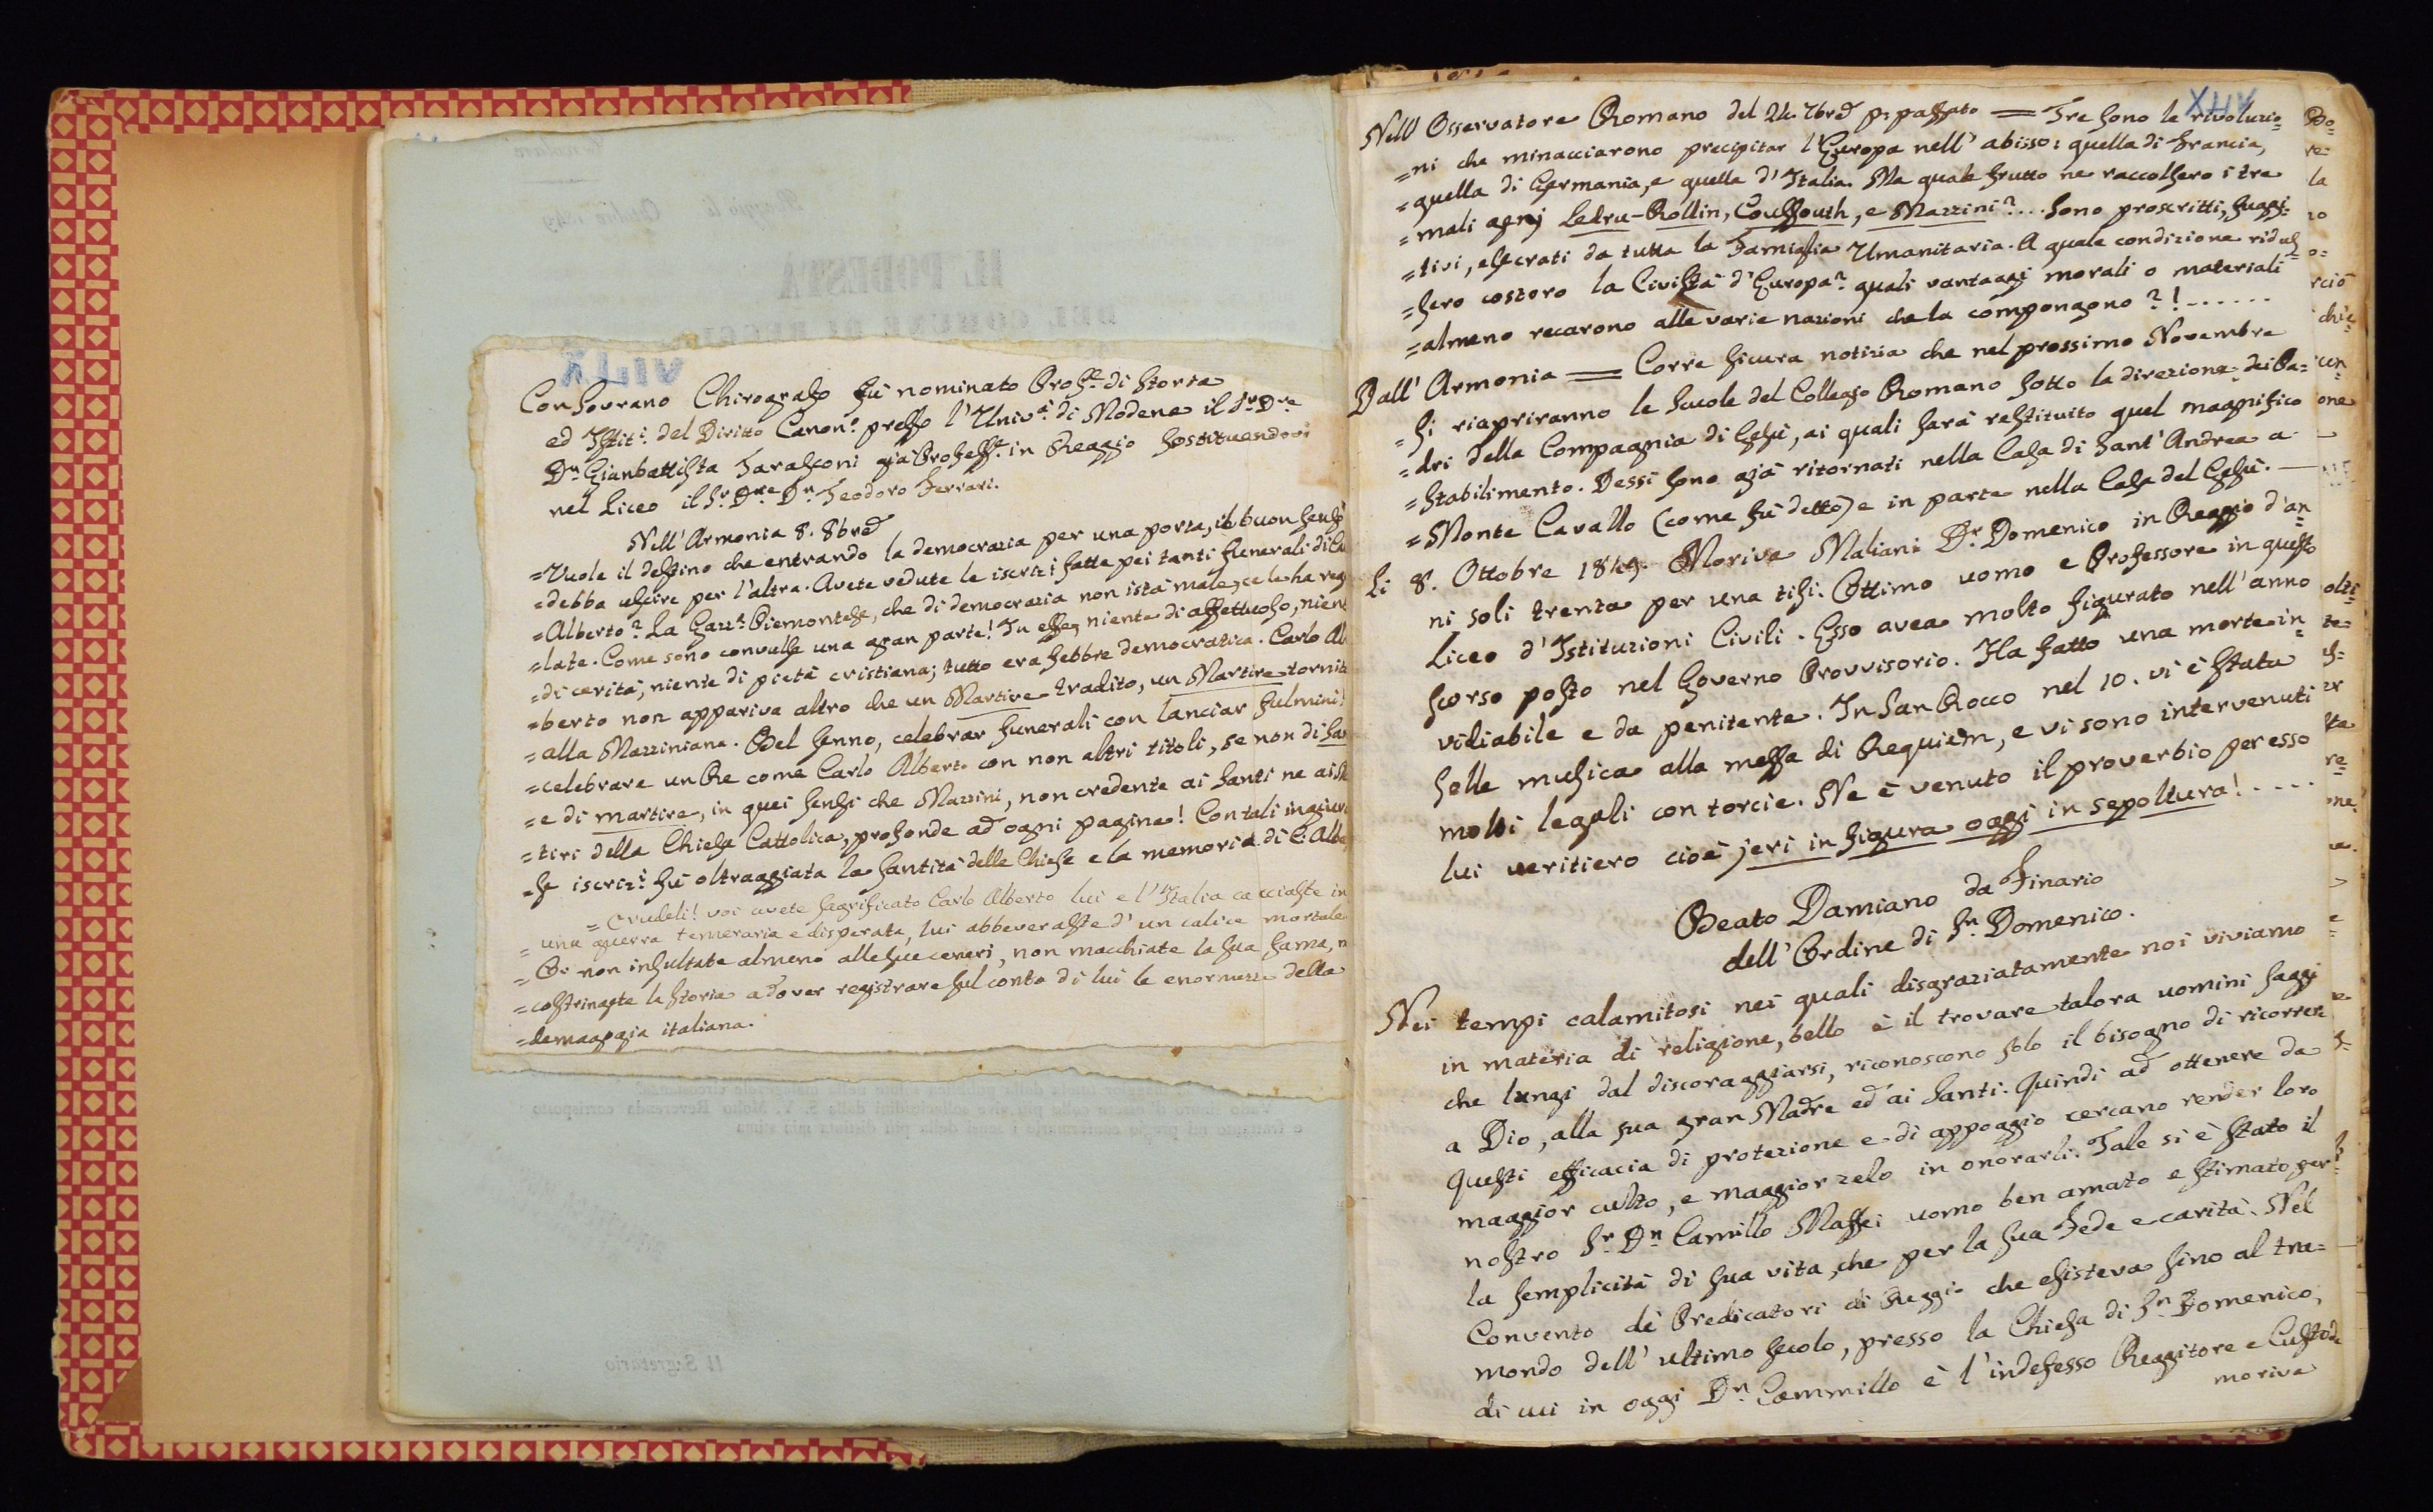 Con Sovrano Chirografo fù nominato Profre. di Storia
ed Istiti. del Diritto Canono. presso l'Univà. di Modena il Sr. Dre.
Dn. Gianbattista Taraſconi già Profeſsre. in Reggio sostituendovi
nel Liceo il Sr. Dre. Dn. Teodoro Ferrari.
Nell'Armonia 8. 8bre
=Vuole il destino che entrando la democrazia per una porta, il buon senso
=debba uscire per l'altra. Avete vedute le iscrizi fatte pei tanti funerali di
=Alberto? La Gazza. Piemontese, che di democrazia non istà male, ce le ha
=late. Come sono convulse una gran parte! In esse, niente di affettuoso,
=di carità, niente di pietà cristiana; tutto era febbre democratica. Carlo
=berto non appariva altro che un Martire tradito, un Martire
=alla Mazziniana. Bel senno, celebrar funerali con lanciar fulmini!
=celebrare un Re come Carlo Alberto con non altri titoli, se non di
=e di martire, in quei sensi che Mazzini, non credente ai Santi ne ai
=tiri della Chiesa Cattolica, profonde ad ogni pagina! Con tali
=se iscrizi. fù oltraggiata la santità delle Chiese e la memoria di C.
= Crudeli! voi avete sagrificato Carlo Alberto lui e l'Italia cacciaste in
= una guerra temeraria e disperata, lui abbeveraste d'un calice mortale
= non insultate almeno alle sue ceneri, non macchiate la sua fama,
=costringete la storia a dover registrare sul conto di lui le enormezze della
=demagogia italiana.
Nell'Osservatore Romano del 24. 7bre p. passato = Tre sono le rivoluzio=
=ni che minacciarono precipitar l'Europa nell'abisso: quella di Francia,
=quella di Germania, e quella d'Italia. Ma quale frutto ne raccolsero i tre
=mali genj Ledru-Rollin, Coussouth, e Mazzini?... Sono proscritti, fuggi=
=tivi, esecrati da tutta la Famiglia Umanitaria. A quale condizione ridus=
=sero costoro la Civiltà d'Europa? quali vantaggi morali o materiali
=almeno recarono alle varie nazioni che la compongono?!......
Dall'Armonia = Corre sicura notizia che nel prossimo Novembre
=si riapriranno le scuole del Collegio Romano sotto la direzione dei Pa=
=dri della Compagnia di Gesù, ai quali sarà restituito quel magnifico
=stabilimento. Dessi sono già ritornati nella Casa di Sant'Andrea a
=Monte Cavallo (come fù detto) e in parte nella Casa del Gesù. —
Li 8. Ottobre 1849. Moriva Maliani Dr. Domenico in Reggio d'an=
ni soli trenta per una tisi. Ottimo uomo e Professore in questo
Liceo d'Istituzioni Civili. Esso avea molto figurato nell'anno
scorso posto nel Governo Provvisorio. Ha fatto una morte in=
vidiabile e da penitente. In San Rocco nel 10. vi è stata
solle musica alla messa di Requiem, e vi sono intervenuti
molti legali con torcie. Ne è venuto il proverbio per esso
lui veritiero cioè jeri in figura oggi in sepoltura!....
Beato Damiano da Finario
dell'Ordine di Sn. Domenico.
Nei tempi calamitosi nei quali disgraziatamente noi viviamo
in materia di religione, bello è il trovare talora uomini saggi
che lungi dal discoraggiarsi, riconoscono solo il bisogno di ricorrere
a Dio, alla sua gran Madre ed ai Santi. Quindi ad ottenere da
questi efficacia di protezione e di appoggio cercano render loro
maggior culto, e maggior zelo in onorarli. Tale si è stato il
nostro Sr. Dn. Camillo Maffei uomo ben amato e stimato per
la semplicità di sua vita, che per la sua Fede e carità. Nel
Convento de Predicatori di Reggio che esisteva sino al tra=
mondo dell'ultimo secolo, presso la Chiesa di Sn. Domenico,
di cui in oggi Dn. Cammillo è l'indefesso Reggitore e Custode
moriva